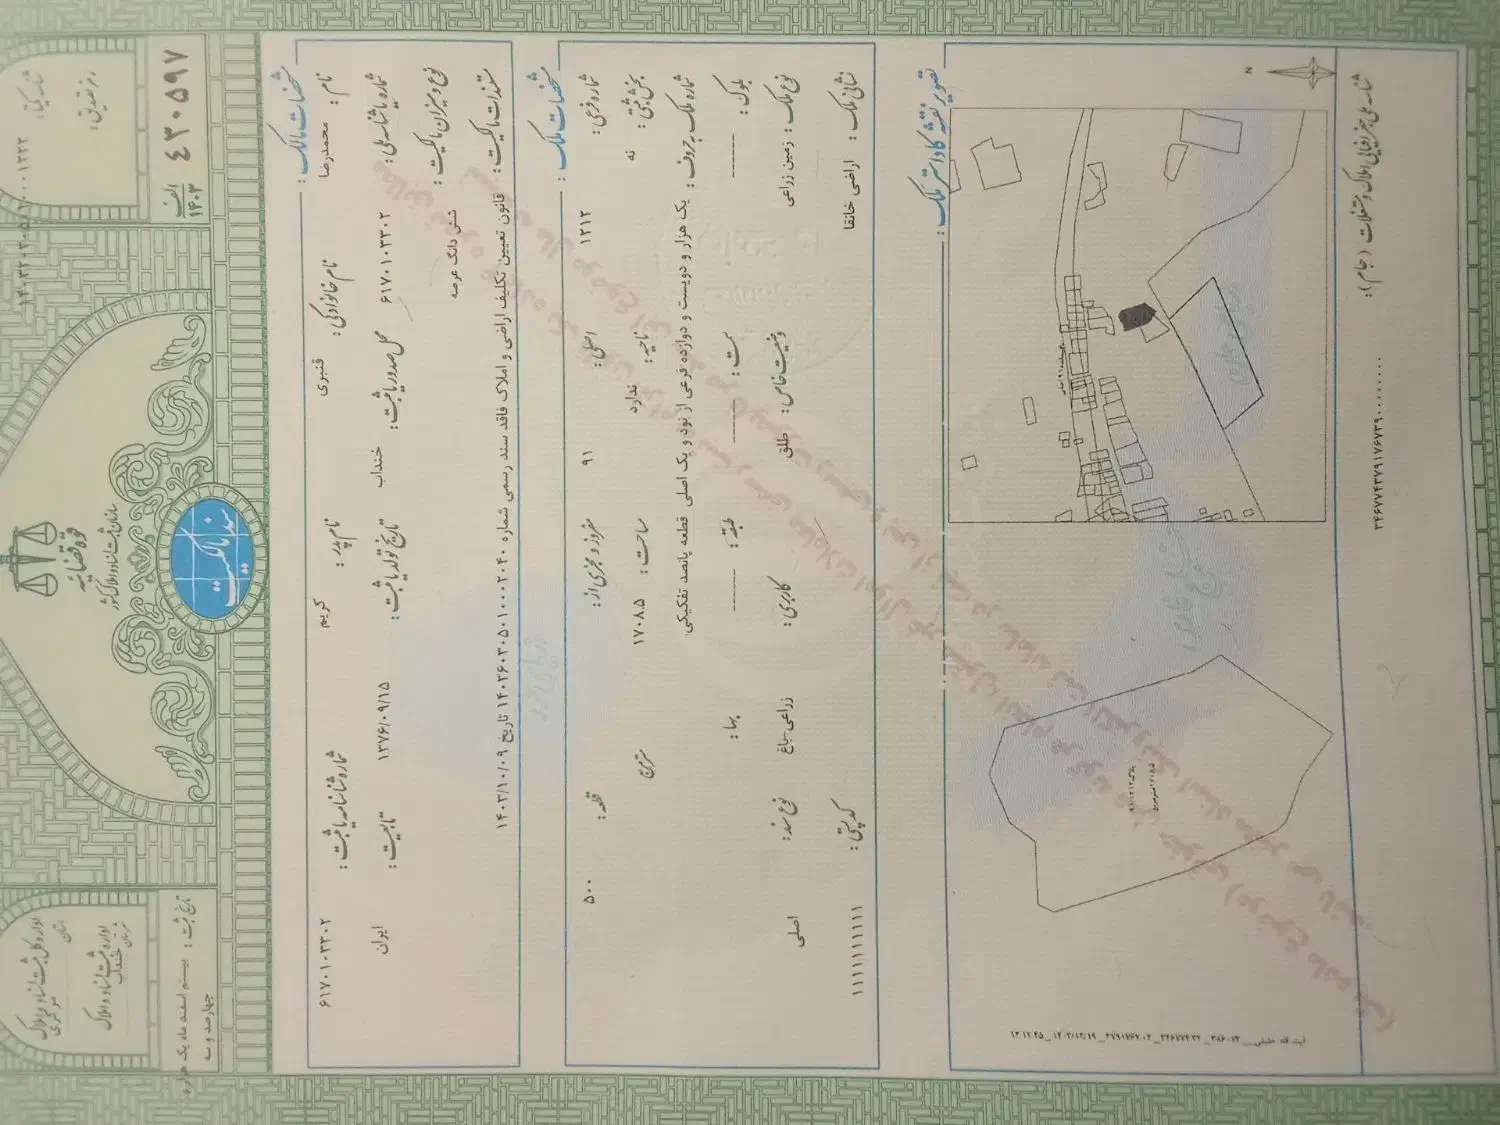 قوه قضائیه
سازمان ثبت اسناد و املاک کشور
سند مالکیت
شناسه یکتا:
۴۳۰۵۹۷
الف
۱۴۰۳
اداره کل ثبت اسناد و املاک
استان مرکزی
اداره ثبت اسناد و املاک
شهرستان خنداب
تاریخ ثبت: بیستم اسفند ماه یک هزار و
چهارصد و سه
مشخصات مالک:
نام: محمدرضا نام خانوادگی: قنبری نام پدر: کریم شماره شناسنامه یا ثبت: ۶۱۷۰۱۰۳۳۰۲
شماره یا شناسه ملی: ۶۱۷۰۱۰۳۳۰۲ محل صدور یا ثبت: خنداب تاریخ تولد یا ثبت: ۱۳۷۶/۰۹/۱۵ تابعیت: ایران
نوع و میزان مالکیت: شش دانگ عرصه
مستندات مالکیت: قانون تعیین تکلیف اراضی و املاک فاقد سند رسمی شماره ۱۴۰۳۶۰۳۰۵۰۱۰۰۰۲۰۴۰ تاریخ ۱۴۰۳/۱۰/۰۹
مشخصات ملک:
شماره فرعی: ۱۲۱۲ اصلی: ۹۱ مفروز و مجزی از: قطعه: ۵۰۰
بخش ثبتی: نه ناحیه: ندارد مساحت: ۱۷۰۸.۵ مترمربع
شماره ملک به حروف: یک هزار و دویست و دوازده فرعی از نود و یک اصلی قطعه پانصد تفکیکی.
بلوک: -------- سمت: -------- طبقه: -------- بها:
نوع ملک: زمین زراعی وضعیت خاص: طلق کاربری: زراعی-باغ نوع سند: اصلی
نشانی ملک: اراضی خانقا کد پستی: ۱۱۱۱۱۱۱۱۱۱
تصویر نقشه کاداستر ملک:
N
شناسه ملی جغرافیایی املاک و مستغلات (جام):